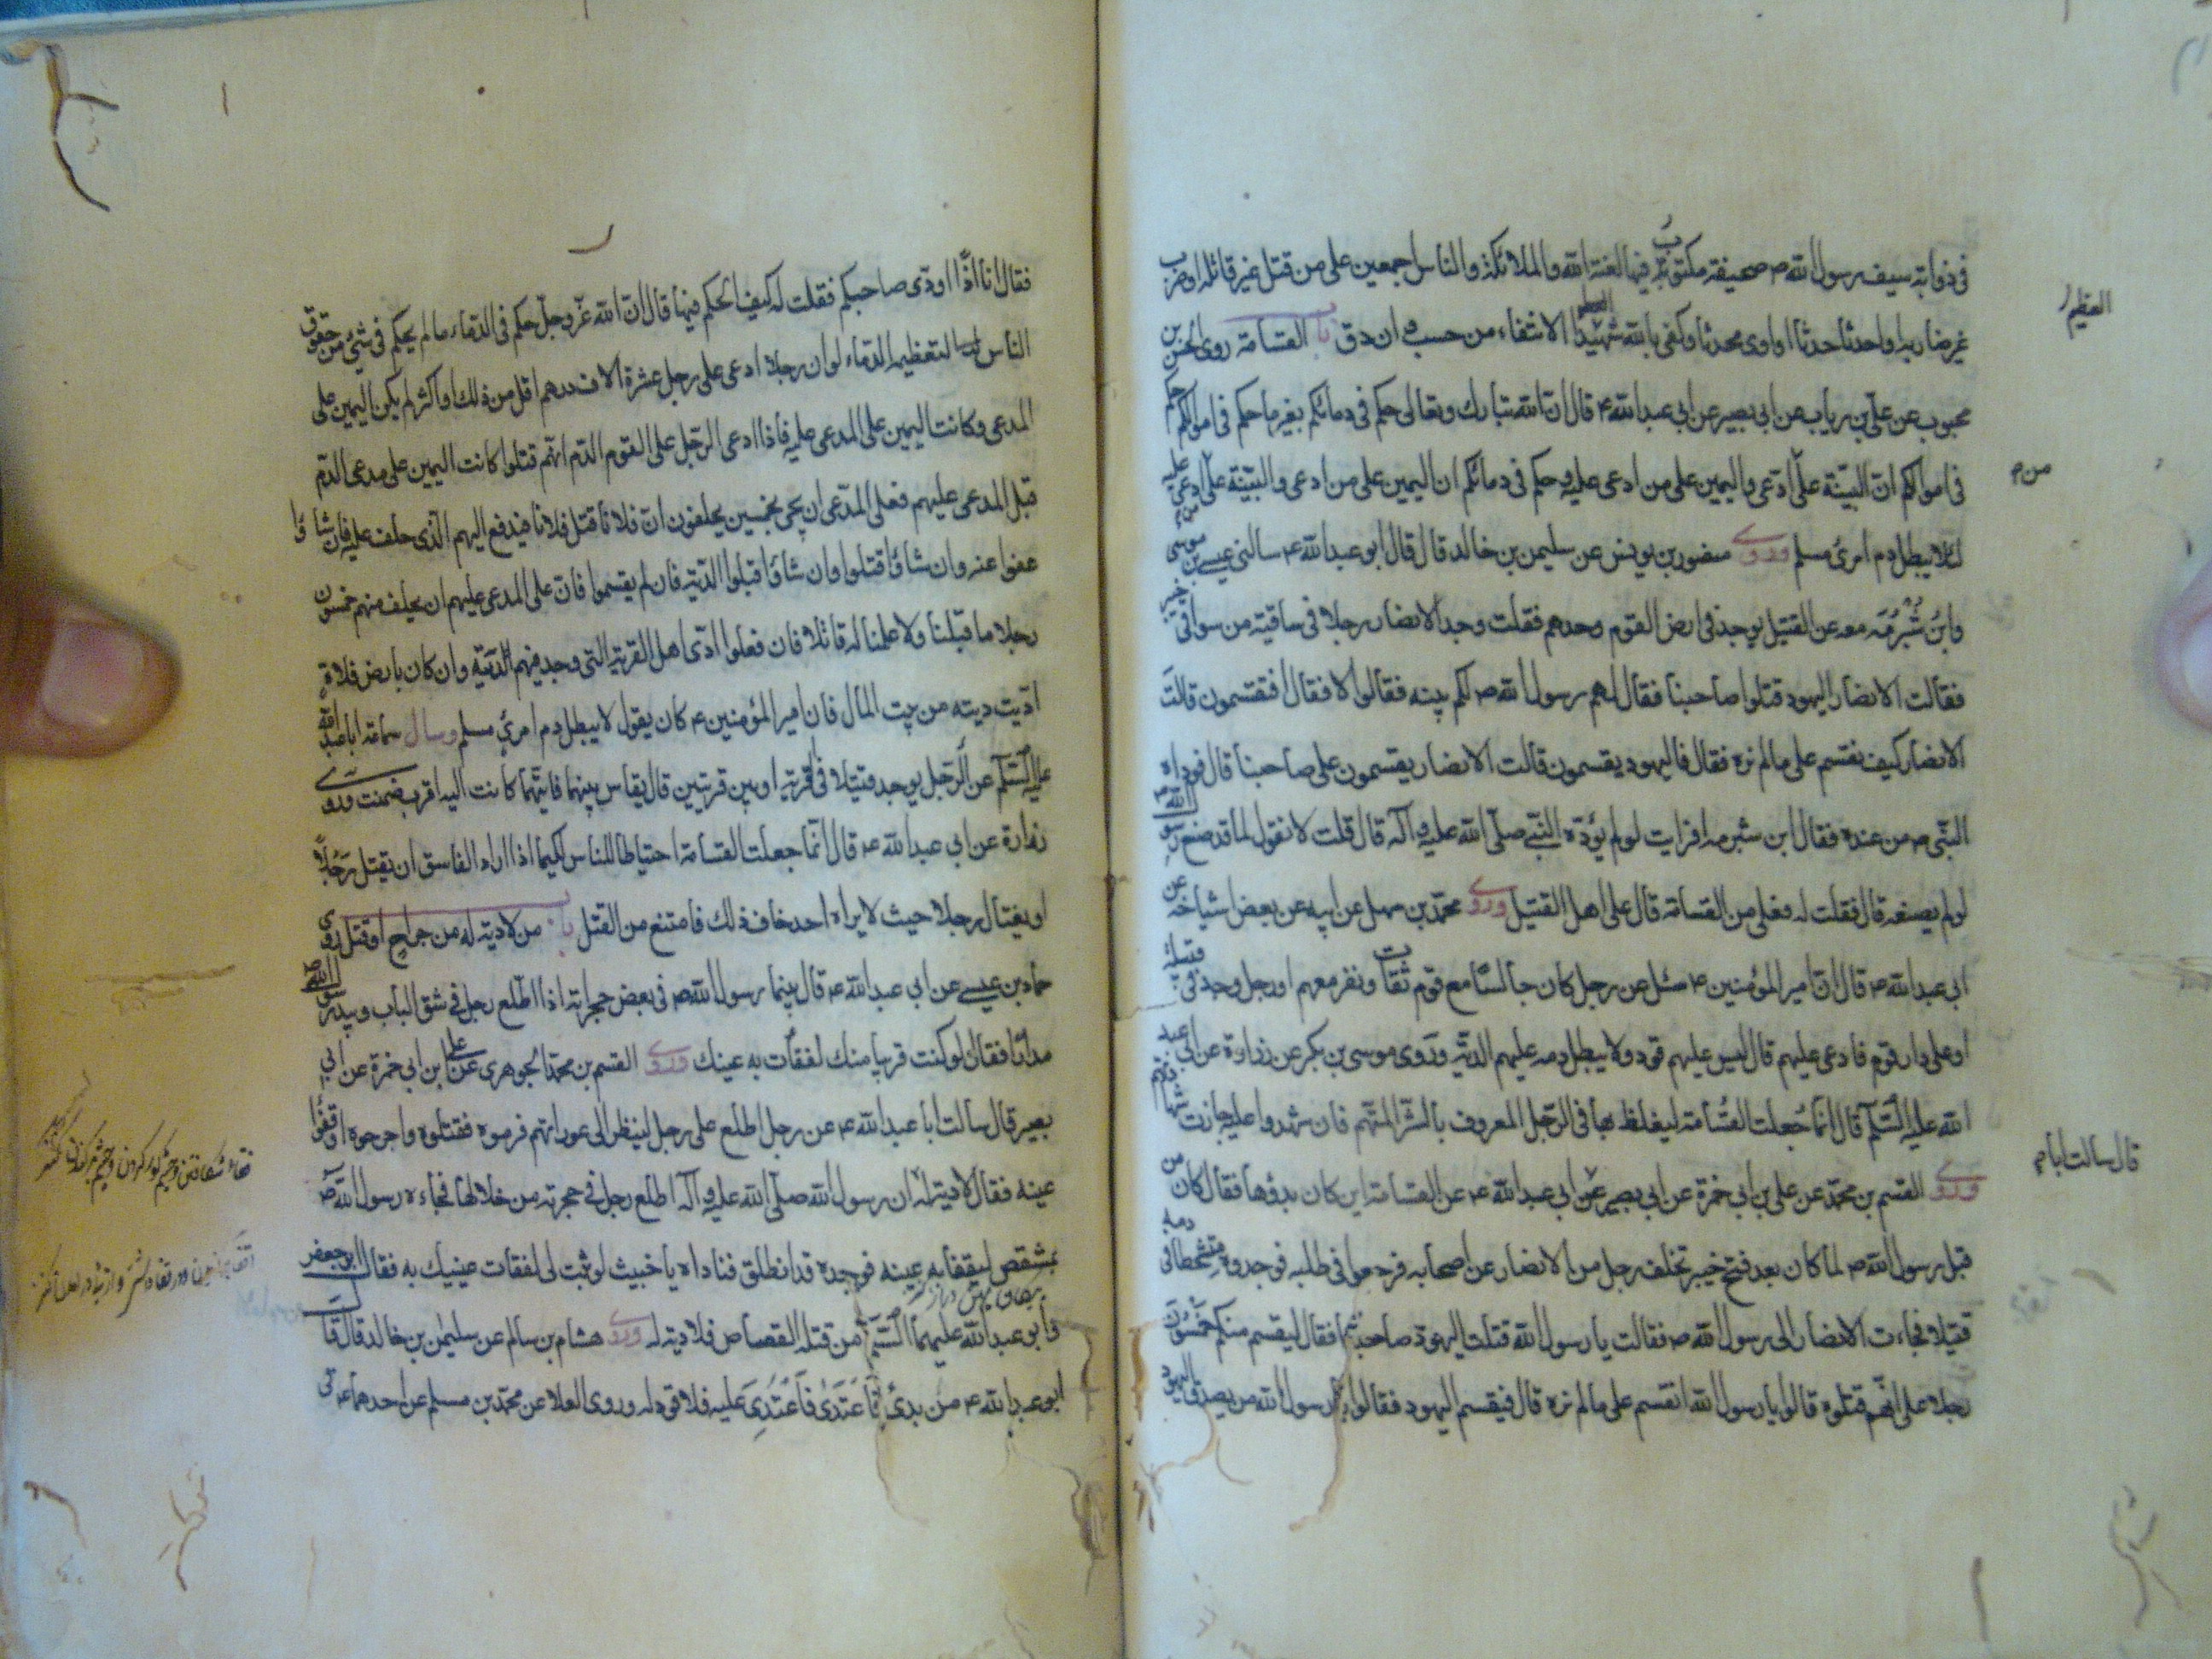 فى ذوابة سيف رسول الله ص صحيفة مكتوب فيها لعنة الله والملائكة والناس اجمعين على من قتل غير قاتله او ضرب
غير ضاربه او احدث حدثا او اوى محدثا وكفى بالله شهيدا الانتفاء من حسب و ان دق باب القسامة روى الحسن بن
محبوب عن على بن رياب عن ابى بصير عن ابى عبد الله ع قال ان الله تبارك وتعالى حكم فى دمائكم بغير ما حكم فى اموالكم حكم
فى اموالكم ان البينة على ادعى واليمين على من ادعى عليه وحكم فى دمائكم ان اليمين على من ادعى والبينة على ادعى عليه
لئلا يبطل دم امرئ مسلم وروى منصور بن يونس عن سليمن بن خالد قال قال ابو عبد الله ع سالنى عيسى بن موسى
وابن شبرمة معه عن القتيل يوجد فى ارض القوم وحدهم فقلت وجد الانصار رجلا فى ساقية من سواقى خيبر
فقالت الانصار اليهود قتلوا صاحبنا فقال لهم رسول الله ص لكم بينه فقالوا لا فقال افتقسمون قالت
الانصار كيف نقسم على ما لم نره فقال فاليهود يقسمون قالت الانصار يقسمون على صاحبنا قال فوداه
النبى ص من عنده فقال ابن شبرمه افرايت لو لم يؤده النبى صلى الله عليه وآله قال قلت لا نقول لما قد صنع رسول الله ص
لو لم يصنعه قال فقلت له فعلى من القسامة قال على اهل القتيل وروى محمد بن سهل عن ابيه عن بعض اشياخه عن
ابى عبد الله ع قال ان امير المؤمنين ع سئل عن رجل كان جالسا مع قوم ثقات ونفر معهم او رجل وجد فى قبيلة
او على دار قوم فادعى عليهم قال ليس عليهم قود ولا يبطل دمه عليهم الدية وروى موسى بن بكر عن زرارة عن ابى عبد
الله عليه السلام قال انما جعلت القسامة ليغلظ بها فى الرجل المعروف بالشر المتهم فان شهدوا عليه جازت شهادتهم
وروى القسم بن محمد عن على بن ابى حمزة عن ابى بصير عن ابى عبد الله ع عن القسامة اين كان بدؤها فقال كان من
قبل رسول الله ص لما كان بعد فتح خيبر تخلف رجل من الانصار عن اصحابه فرجعوا فى طلبه فوجدوه متشحطا فى دمه
قتيلا فجاءت الانصار الى رسول الله ص فقالت يا رسول الله قتلت اليهود صاحبنا فقال ليقسم منكم خمسون
رجلا على انهم قتلوه قالوا يا رسول الله انقسم على ما لم نره قال فيقسم اليهود فقالوا يا رسول الله من يصدق اليهود
العظيم
من م
قال سالت ابا م
فقال انا اذا اودى صاحبكم فقلت له كيف الحكم فيها قال ان الله عز وجل حكم فى الدماء ما لم يحكم فى شئ من حقوق
الناس لتعظيم الدماء لو ان رجلا ادعى على رجل عشرة الاف درهم اقل من ذلك او اكثر لم يكن اليمين على
المدعى وكانت اليمين على المدعى عليه فاذا ادعى الرجل على القوم الدم انهم قتلوا كانت اليمين على مدعى الدم
قبل المدعى عليهم فعلى المدعى ان يجئ بخمسين يحلفون ان فلانا قتل فلانا فيدفع اليهم الذى حلف عليه فان شاؤا
عفوا عنه وان شاؤا قتلوا وان شاؤا قبلوا الدية فان لم يقسموا فان على المدعى عليهم ان يحلف منهم خمسون
رجلا ما قتلنا ولا علمنا له قاتلا فان فعلوا ادى اهل القرية التى وجد فيهم الدية وان كان بارض فلاة
اديت ديته من بيت المال فان امير المؤمنين ع كان يقول لا يبطل دم امرئ مسلم وسال سماعة ابا عبد الله
عليه السلام عن الرجل يوجد قتيلا فى قرية او بين قريتين قال يقاس بينهما فايتهما كانت اليه اقرب ضمنت وروى
زرارة عن ابى عبد الله ع قال انما جعلت القسامة احتياطا للناس لكيما اذا اراد الفاسق ان يقتل رجلا
او يغتال رجلا حيث لا يراه احد خاف ذلك فامتنع من القتل باب من لا دية له من جراح او قتل روى
حماد بن عيسى عن ابى عبد الله ع قال بينما رسول الله ص فى بعض حجراته اذا اطلع رجل فى شق الباب وبيد رسول الله ص
مدراة فقال لو كنت قريبا منك لفقأت به عينك وروى القسم بن محمد الجوهرى عن على ابن ابى حمزة عن ابى
بصير قال سالت ابا عبد الله ع عن رجل اطلع على رجل لينظر الى عوراتهم فرموه فقتلوه او جرحوه او فقؤا
عينه فقال لا دية له ان رسول الله صلى الله عليه وآله اطلع رجل فى حجرته من خلالها فجاءه رسول الله ص
بمشقص ليفقأ به عينه فوجده قد انطلق فناداه يا خبيث لو ثبت لى لفقات عينيك به فقال ابو جعفر
وابو عبد الله عليهما السلام من قتله القصاص فلا دية له وروى هشام بن سالم عن سليمن بن خالد قال قال
ابو عبد الله ع من بدئ فاعتدى فاعتدى عليه فلا قود له وروى العلا عن محمد بن مسلم عن احدهما ع فى